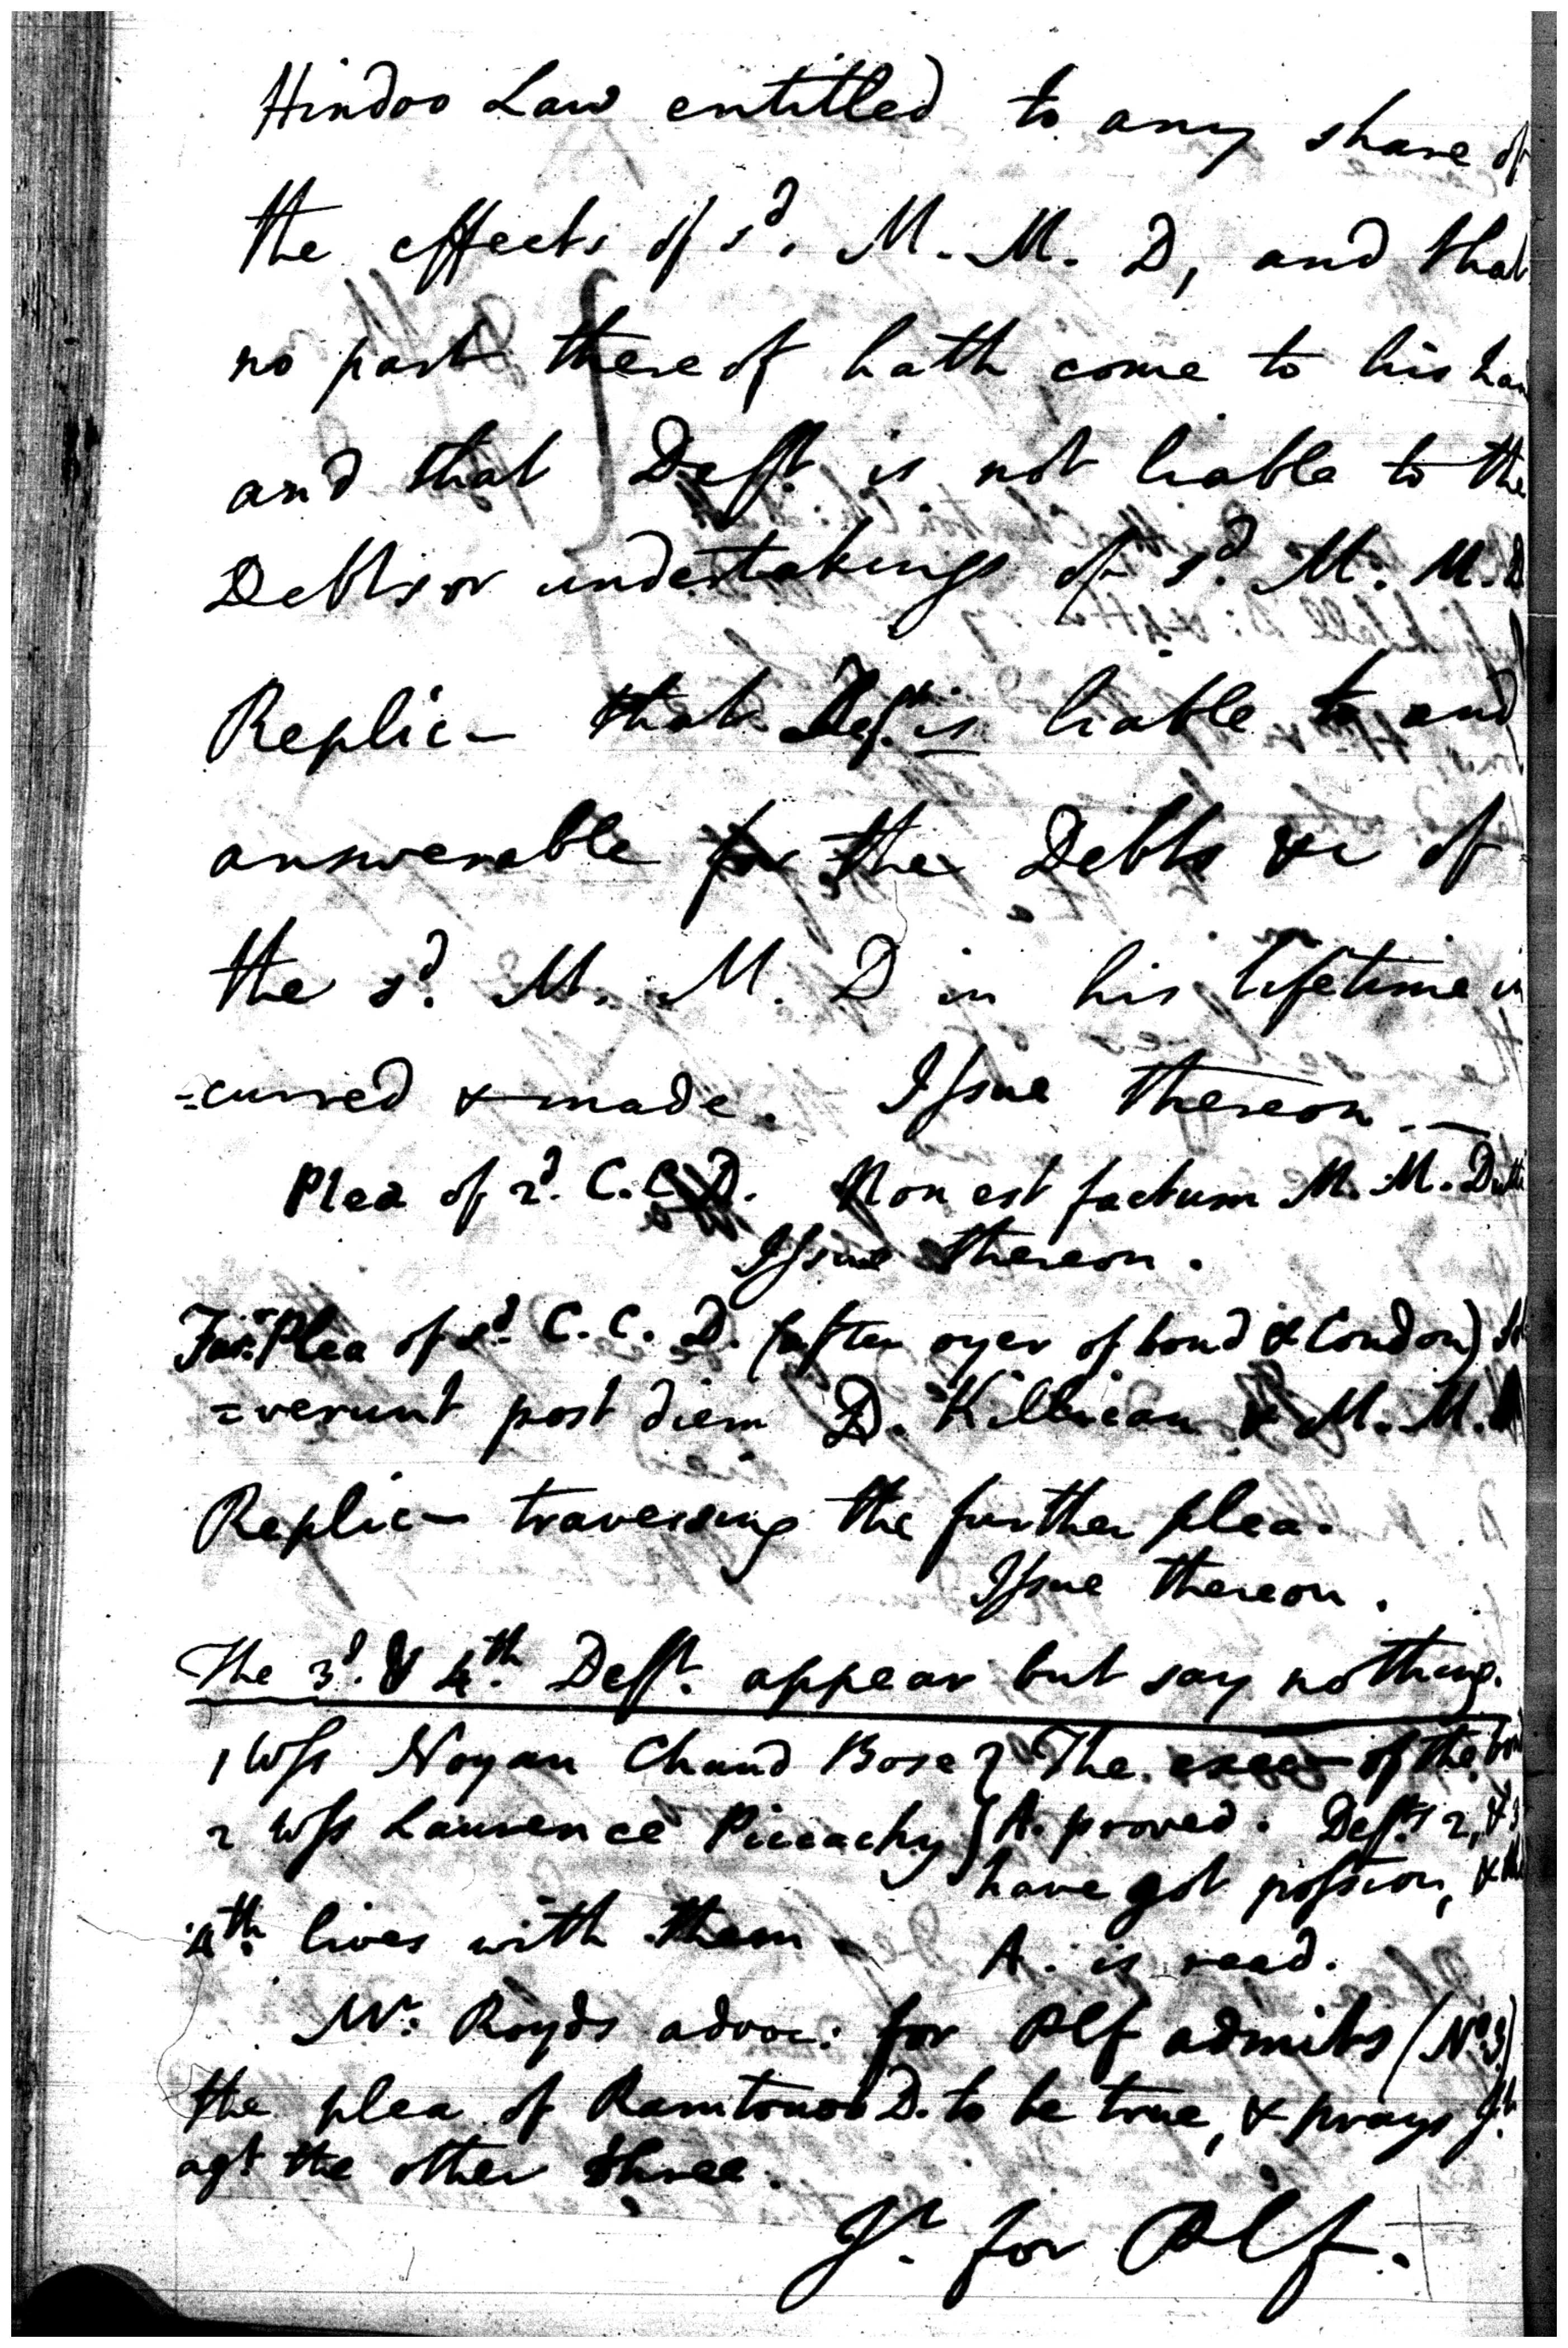 Hindoo Law entitled to any share of
the effects of sd. M. M. D, and that
no part thereof hath come to his
and that Deft. is not liable to the
Debts or undertakings of sd. M. M. D
Replic- that Deft. is liable to and
answerable for the Debts &c of
the sd. M. M. D in his lifetime in
=curred & made. Issue thereon -
Plea of 2d. C. C. D. Non est factum M. M.
Issue thereon.
Plea of sd. C. C. D. (after oyer of bond & Condon)
=verunt post diem D. Killican & M. M.
Replic- traversing the further plea.
Issue thereon.
The 3d. & 4th. Deft. appear but say nothing.
1 Wss Noyan Chand Bose } The execn of the bond
2 Wss Laurence Piccachy } A. proved. Defts 2, & 3
have got possion, &
4th. lives with them - A. is read.
Mr. Royds advoc: for Plf admits (No. 3)
the plea of Ramtonoo D. to be true, & prays Jt.
agt the other three.
Jt. for Plf.